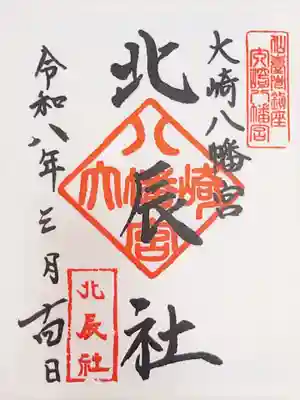 仙臺總鎮座
大崎八幡宮
大崎八幡宮
北辰社
八幡宮
大崎
北辰社
令和八年三月吉日